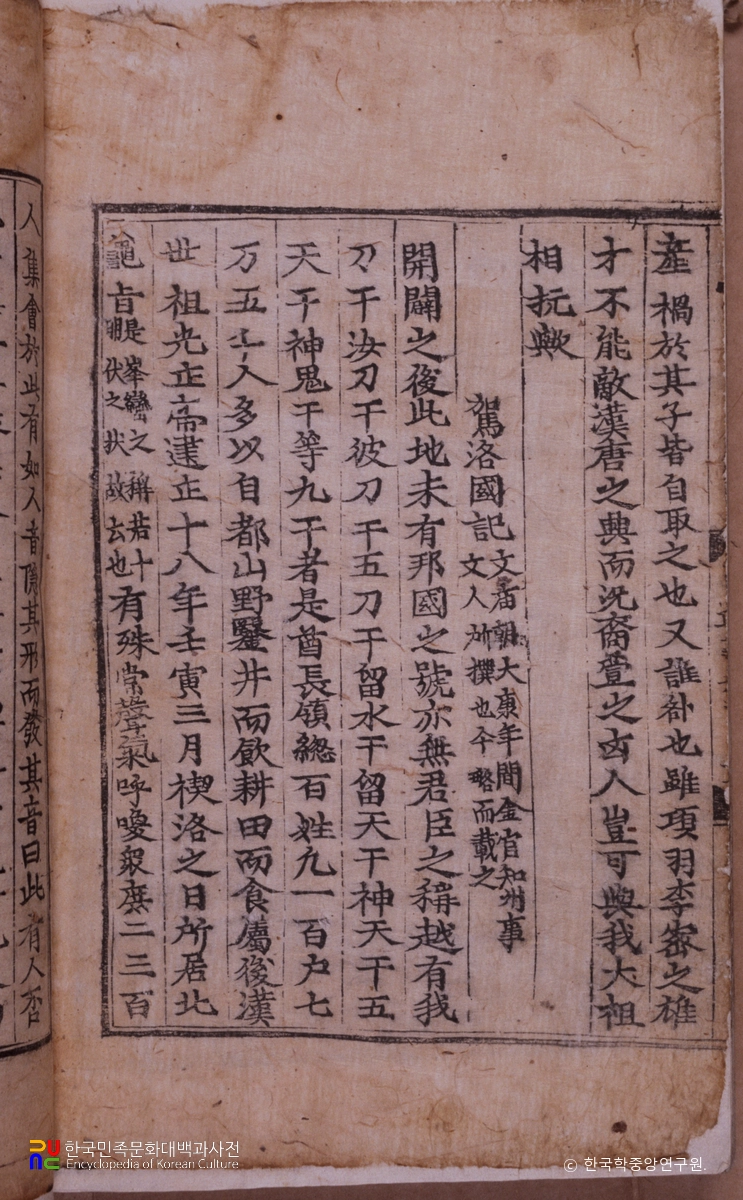 産禍於其子皆自取之也又誰咎也雖項羽李密之雄
才不能敵漢唐之興而況裔萱之凶人豈可與我大祖
相抗歟
駕洛國記文庿朝大康年間金官知州事
文人所撰也今略而載之
開闢之後此地未有邦國之號亦無君臣之稱越有我
刀干汝刀干彼刀干五刀干留水干留天干神天干五
天干神鬼干等九干者是酋長領緫百姓九一百户七
万五千人多以自都山野鑿井而飲耕田而食屬後漢
世祖光正帝建正十八年壬寅三月禊洛之日所居北
龜旨是峯巒之稱若十
朋伏之状故云也有殊常聲氣呼喚衆庶二三百
人集會於此有如人音隠其形而發其音曰此有人否
한국민족문화대백과사전
Encyclopedia of Korean Culture
© 한국학중앙연구원.